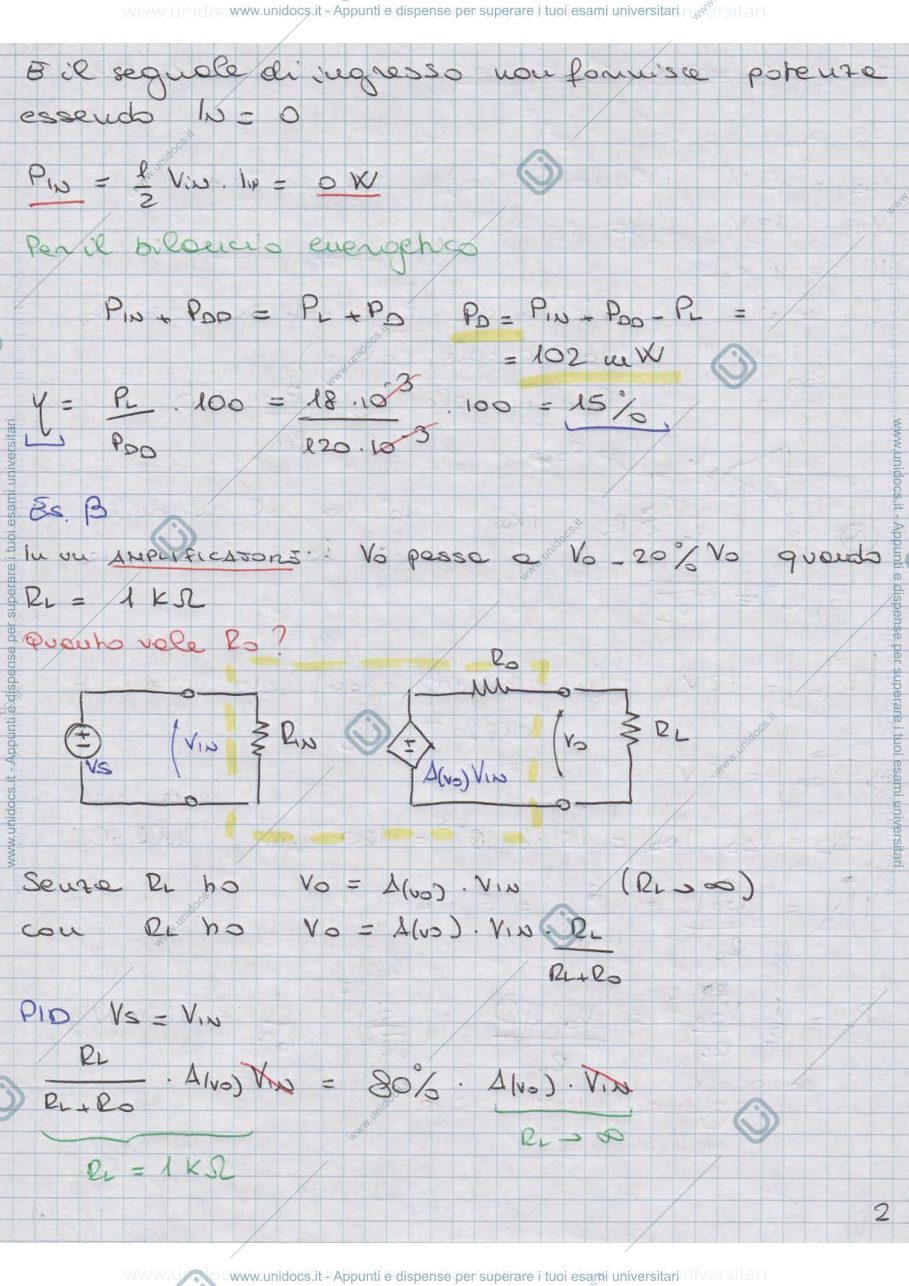 www.unidocs.it - Appunti e dispense per superare i tuoi esami universitari
E il segnale di ingresso non fornisce potenza
essendo IN = 0
PIN = 1/2 VIN . IIN = 0 W
Per il bilancio energetico
PIN + PDD = PL + PD PD = PIN + PDD - PL =
= 102 mW
η = PL/PDD . 100 = 18 . 10^-3 / 120 . 10^-3 . 100 = 15%
Es. β
In un AMPLIFICATORE : Vo passa a Vo - 20% Vo quando
RL = 1 KΩ
Quanto vale Ro?
Ro
VS
VIN
RIN
A(vo) VIN
Vo
RL
Senza RL ho Vo = A(vo) . VIN (RL → ∞)
con RL ho Vo = A(vo) . VIN . RL/RL+Ro
PID VS = VIN
RL/RL+Ro . A(vo) VIN = 80% . A(vo) . VIN
RL → ∞
RL = 1 KΩ
2
www.unidocs.it - Appunti e dispense per superare i tuoi esami universitari
www.unidocs.it - Appunti e dispense per superare i tuoi esami universitari
www.unidocs.it - Appunti e dispense per superare i tuoi esami universitari